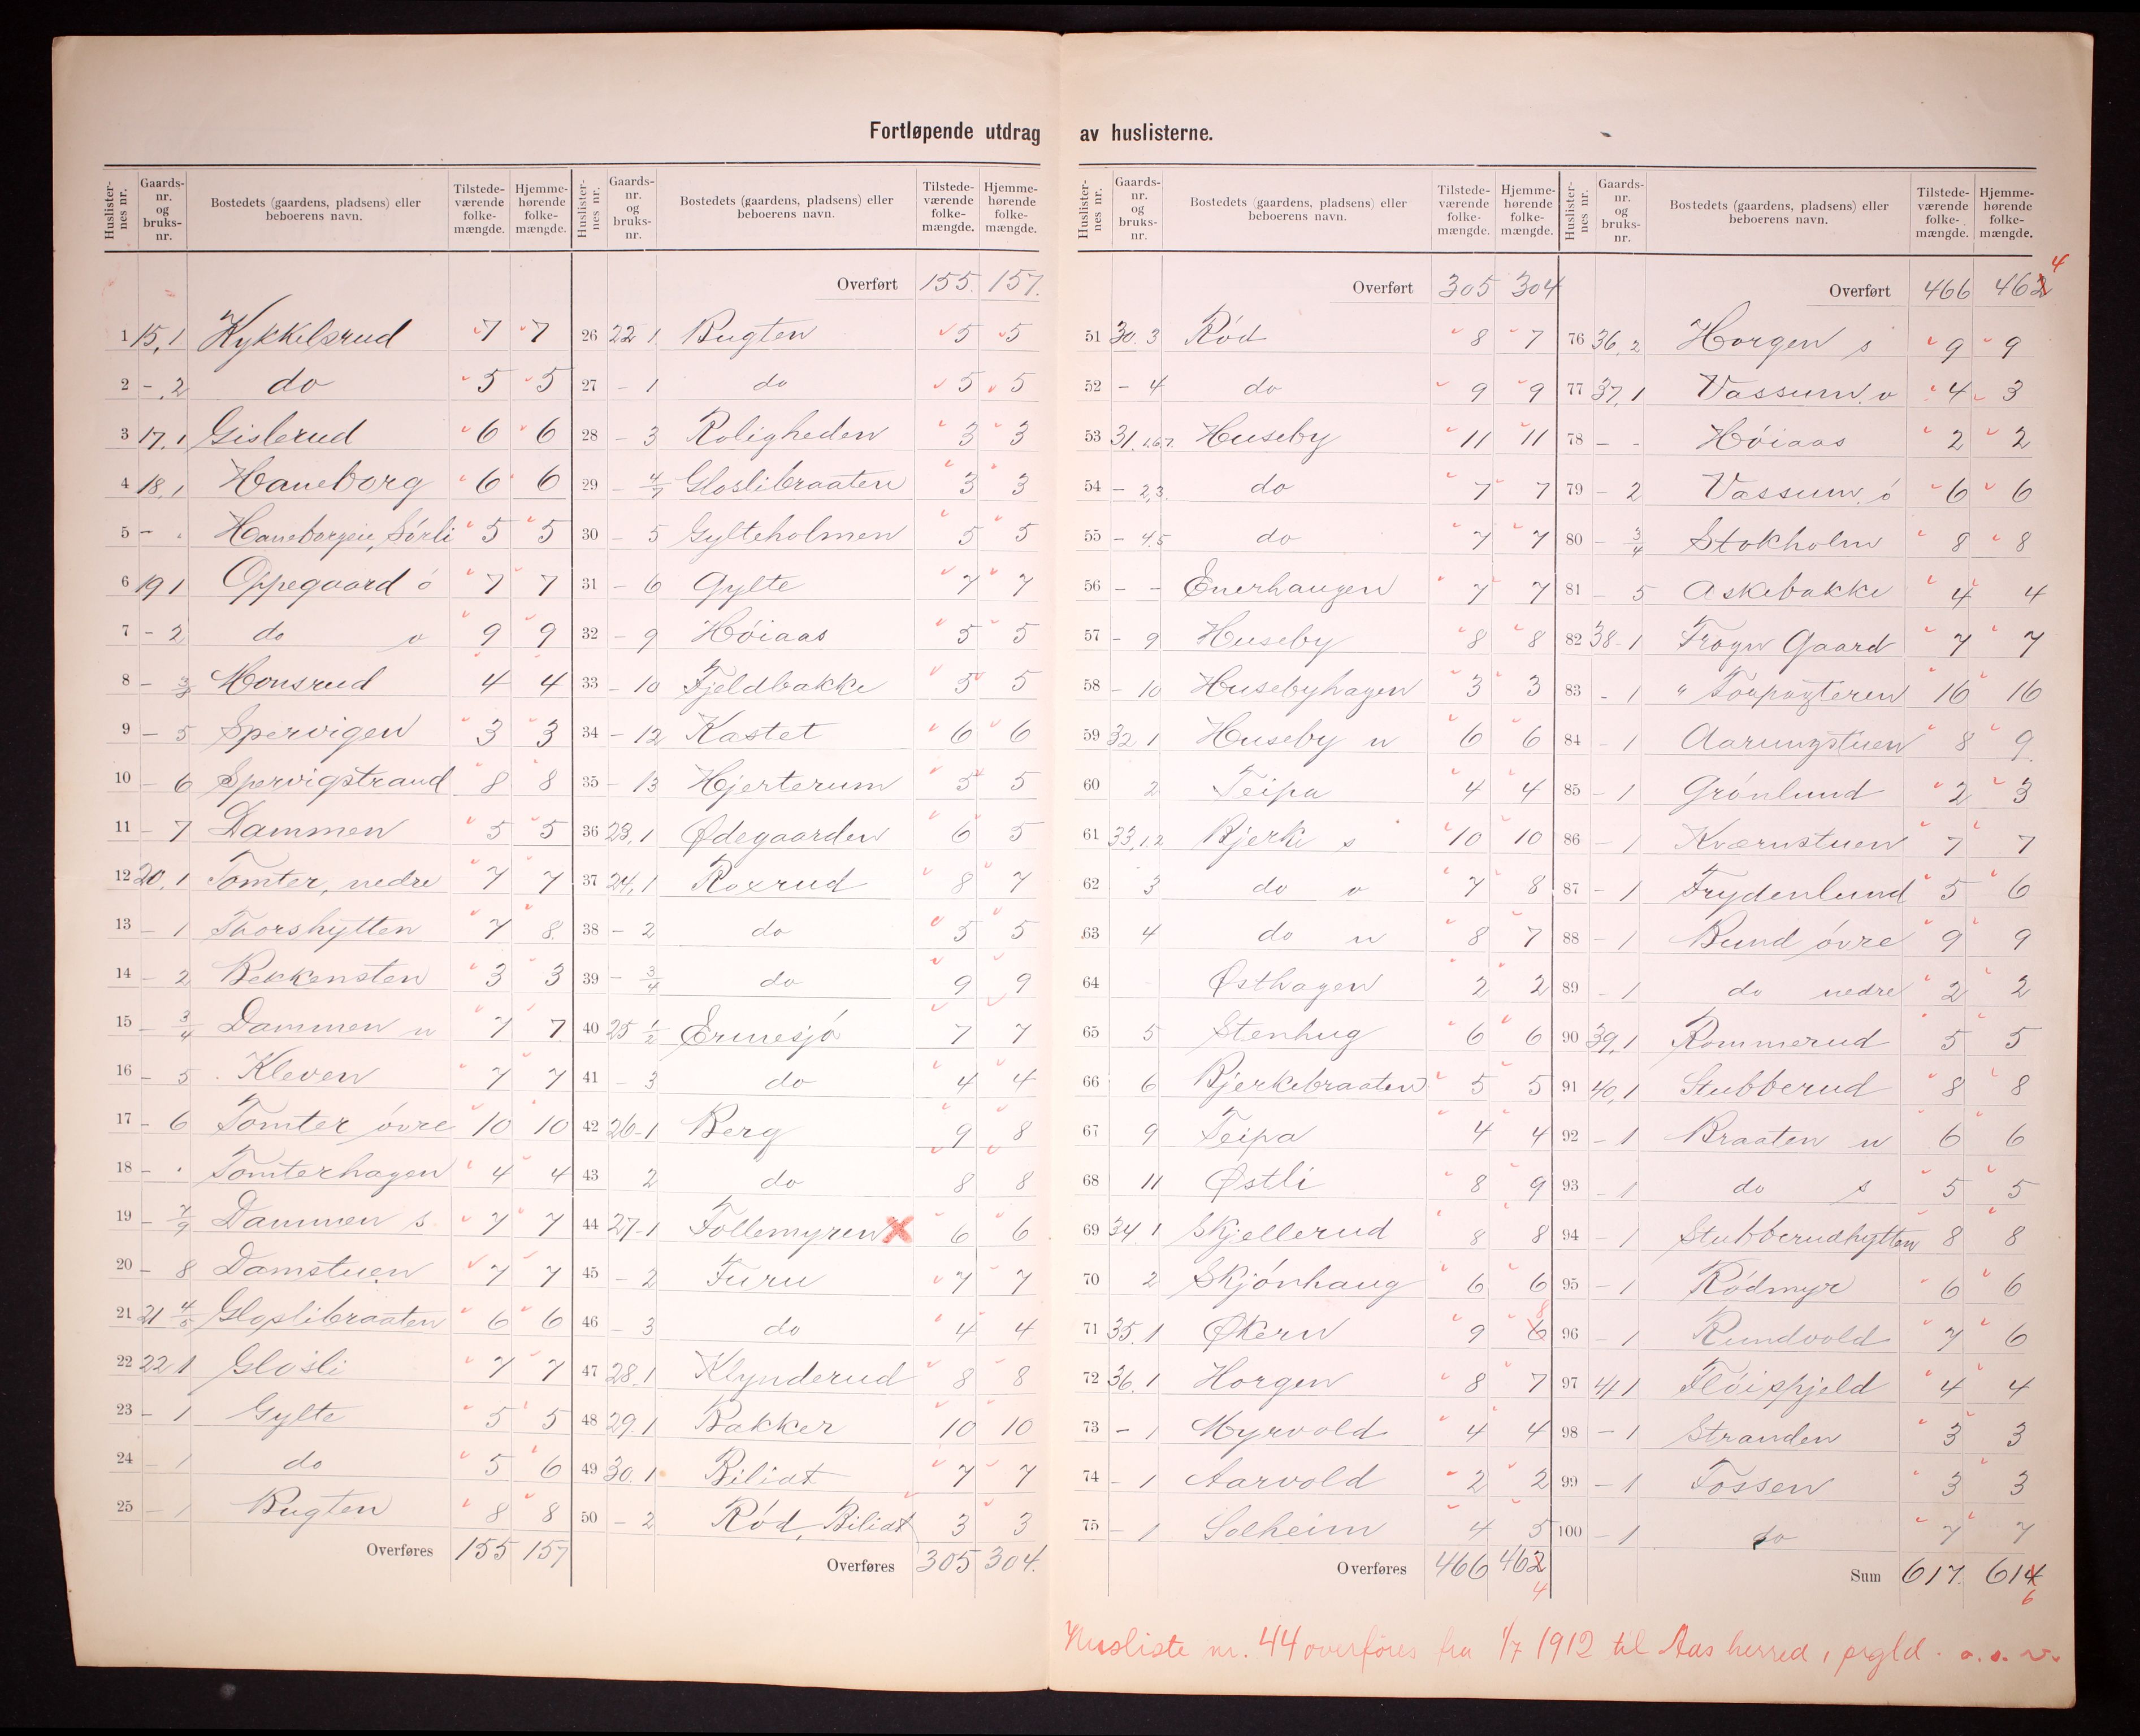 Fortløpende utdrag av huslisterne.
Huslisternes nr. Gaardsnr. og bruksnr. Bostedets (gaardens, pladsens) eller beboerens navn. Tilstedeværende folkemængde. Hjemmehørende folkemængde.
1 15,1 Kykkelsrud 7 7
2 -,2 do 5 5
3 17,1 Gislerud 6 6
4 18,1 Haneborg 6 6
5 - Haneborgeie, Sörli 5 5
6 19 1 Oppegaard ö 7 7
7 - 2 do v 9 9
8 - 3/8 Monsrud 4 4
9 - 5 Spervigen 3 3
10 - 6 Spervigstrand 8 8
11 - 7 Dammen 5 5
12 20,1 Tomter, nedre 7 7
13 - 1 Thorshytten 7 8
14 - 2 Bekkensten 3 3
15 - 3/4 Dammen n 7 7
16 - 5 Kleven 7 7
17 - 6 Tomter övre 10 10
18 - Tomterhagen 4 4
19 - 7/9 Dammen s 7 7
20 - 8 Damstuen 7 7
21 21 4/5 Gloslibraaten 6 6
22 22 1 Glosli 7 7
23 - 1 Gylte 5 5
24 - 1 do 5 6
25 - 1 Bugten 8 8
Overføres 155 157
Huslisternes nr. Gaardsnr. og bruksnr. Bostedets (gaardens, pladsens) eller beboerens navn. Tilstedeværende folkemængde. Hjemmehørende folkemængde.
Overført 155. 157.
26 22 1 Bugten 5 5
27 - 1 do 5 5
28 - 3 Roligheden 3 3
29 - 4/7 Gloslibraaten 3 3
30 - 5 Gylteholmen 5 5
31 - 6 Gylte 7 7
32 - 9 Höiaas 5 5
33 - 10 Fjeldbakke 5 5
34 - 12 Kastet 6 6
35 - 13 Hjerterum 5 5
36 23,1 Ødegaarden 6 5
37 24,1 Roxrud 8 7
38 - 2 do 5 5
39 - 3/4 do 9 9
40 25 1/2 Ermesjö 7 7
41 - 3 do 4 4
42 26-1 Berg 9 8
43 2 do 8 8
44 27-1 Follemyren X 6 6
45 - 2 Furu 7 7
46 - 3 do 4 4
47 28.1 Klynderud 8 8
48 29.1 Bakker 10 10
49 30.1 Biliat 7 7
50 - 2 Röd, Biliat 3 3
Overføres 305 304.
Huslisternes nr. Gaardsnr. og bruksnr. Bostedets (gaardens, pladsens) eller beboerens navn. Tilstedeværende folkemængde. Hjemmehørende folkemængde.
Overført 305 304
51 30.3 Röd 8 7
52 - 4 do 9 9
53 31.1.6.7. Huseby 11 11
54 - 2,3. do 7 7
55 - 4.5 do 7 7
56 - - Enerhaugen 7 7
57 - 9 Huseby 8 8
58 - 10 Husebyhagen 3 3
59 32 1 Huseby n 6 6
60 2 Teipa 4 4
61 33,1.2 Bjerke s 10 10
62 3 do v 7 8
63 4 do n 8 7
64 Østhagen 2 2
65 5 Stenhug 6 6
66 6 Bjerkebraaten 5 5
67 9 Teipa 4 4
68 11 Østli 8 9
69 34.1 Skjellerud 8 8
70 2 Skjönhaug 6 6
71 35.1 Økern 9 6 8
72 36.1 Horgen 8 7
73 - 1 Myrvold 4 4
74 - 1 Aarvold 2 2
75 - 1 Solheim 4 5
Overføres 466 462 4
Huslisternes nr. Gaardsnr. og bruksnr. Bostedets (gaardens, pladsens) eller beboerens navn. Tilstedeværende folkemængde. Hjemmehørende folkemængde.
Overført 466 462 4
76 36,2 Horgen s 9 9
77 37,1 Vassum v 4 3
78 - - Höiaas 2 2
79 - 2 Vassum ö 6 6
80 - 3/4 Stokholm 8 8
81 - 5 Askebakke 4 4
82 38-1 Frogn Gaard 7 7
83 - 1 " Forpagteren 16 16
84 - 1 Aarungstuen 8 9
85 - 1 Grönlund 2 3
86 - 1 Kværnstuen 7 7
87 - 1 Frydenlund 5 6
88 - 1 Bund övre 9 9
89 - 1 do nedre 2 2
90 39,1 Rommerud 5 5
91 40,1 Stubberud 8 8
92 - 1 Braaten n 6 6
93 - 1 do s 5 5
94 - 1 Stubberudhytten 8 8
95 - 1 Rödmyr 6 6
96 - 1 Rundvold 7 6
97 41 1 Flöispjeld 4 4
98 - 1 Stranden 3 3
99 - 1 Fossen 3 3
100 - 1 do 7 7
Sum 617. 614 6
Husliste nr. 44 overføres fra 1/7 1912 til Aas herred, prgld. o.s.v.